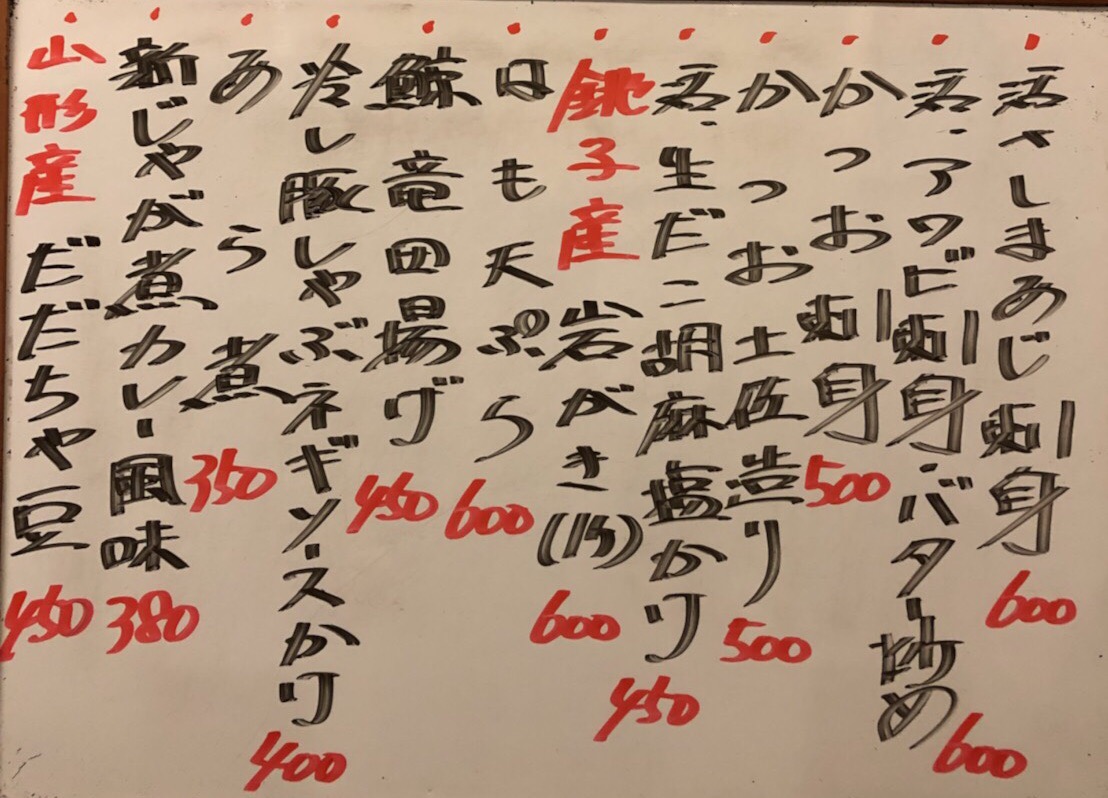 活さしまあじ刺身 600
活・アワビ刺身・バター炒め 600
かつお刺身 500
かつお土佐造り 500
活・生だこ胡麻塩かけ 450
銚子産岩がき(1ケ) 600
はも天ぷら 600
鯨竜田揚げ 450
冷し豚しゃぶネギソースかけ 400
あら煮 350
新じゃが煮カレー風味 380
山形産だだちゃ豆 450